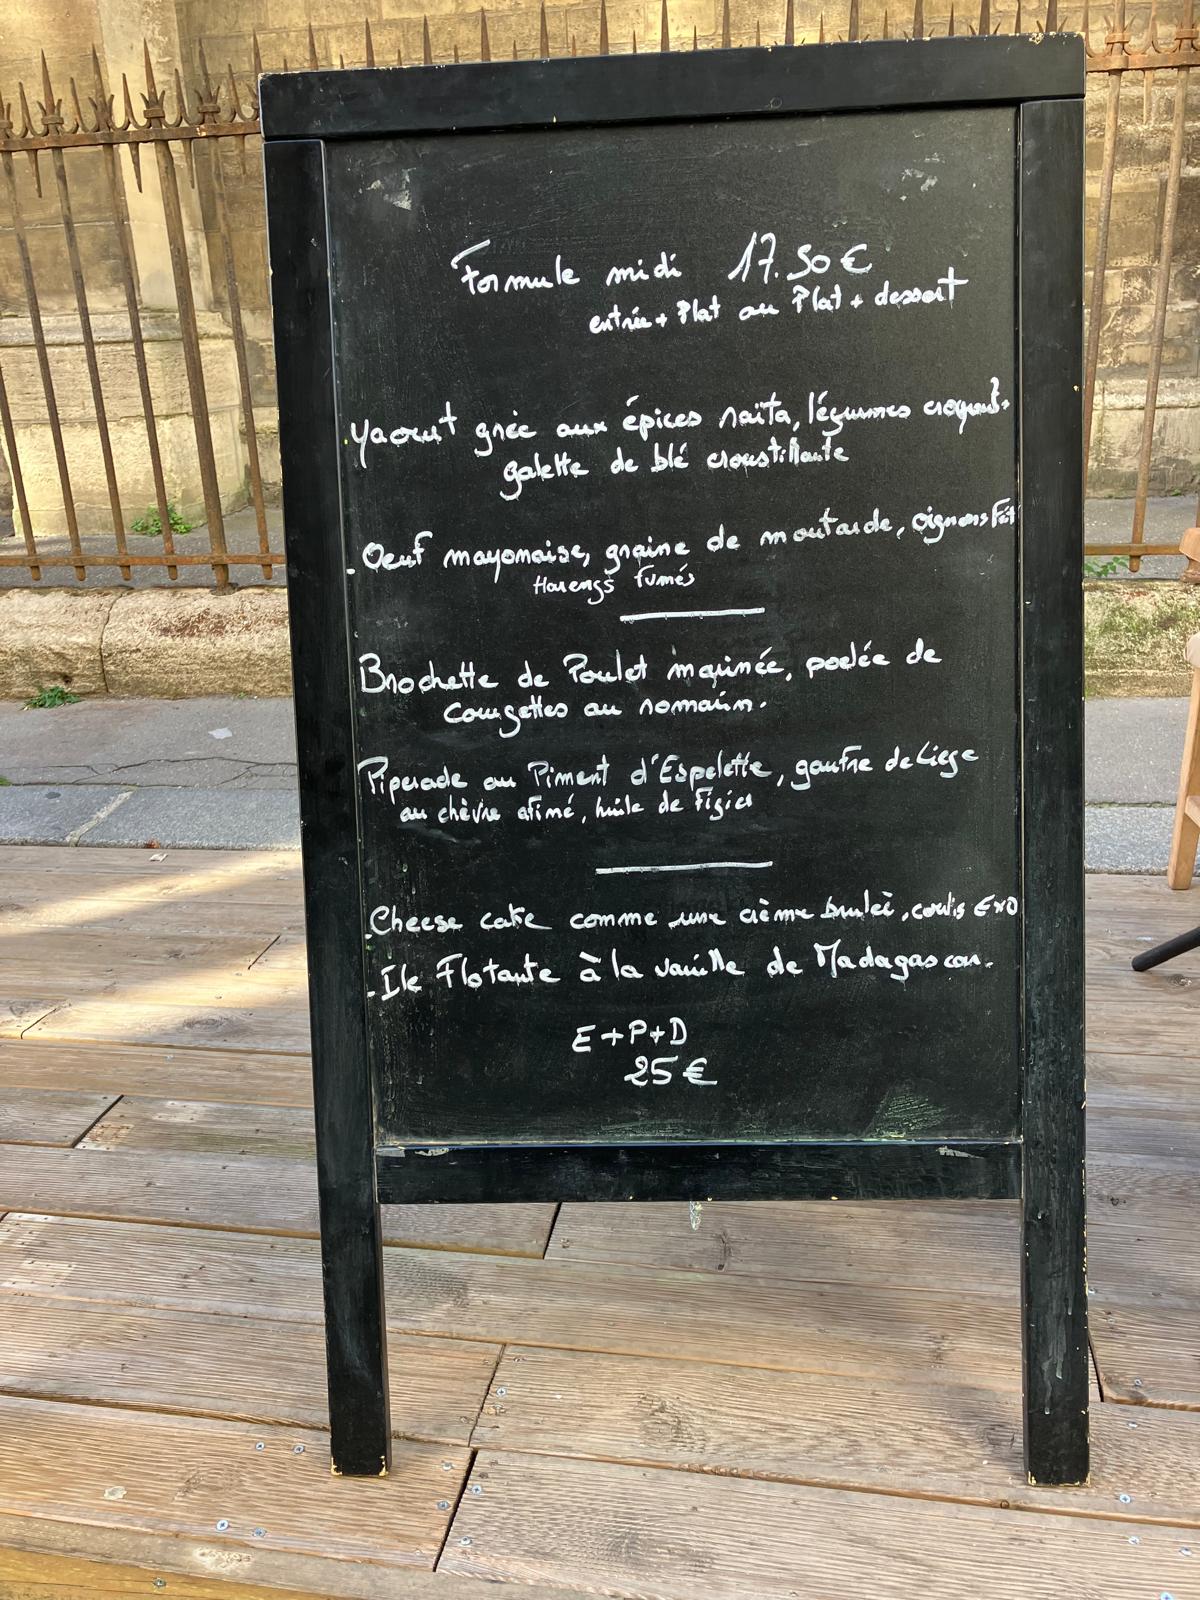 Formule midi 17.50€
entrée + Plat ou Plat + dessert
. Yaourt grèc aux épices raïta, légumes croquant,
galette de blé croustillante
. Oeuf mayonaise, graine de moutarde, oignons frit
Harengs fumés
Brochette de Poulet marinée, poelée de
Courgettes au romarin.
Piperade au Piment d'Espelette, gaufre de Liege
au chèvre afiné, huile de
. Cheese cake comme une crème brulée, coulis Exo
. Ile Flotante à la vanille de Madagascar.
E+P+D
25€